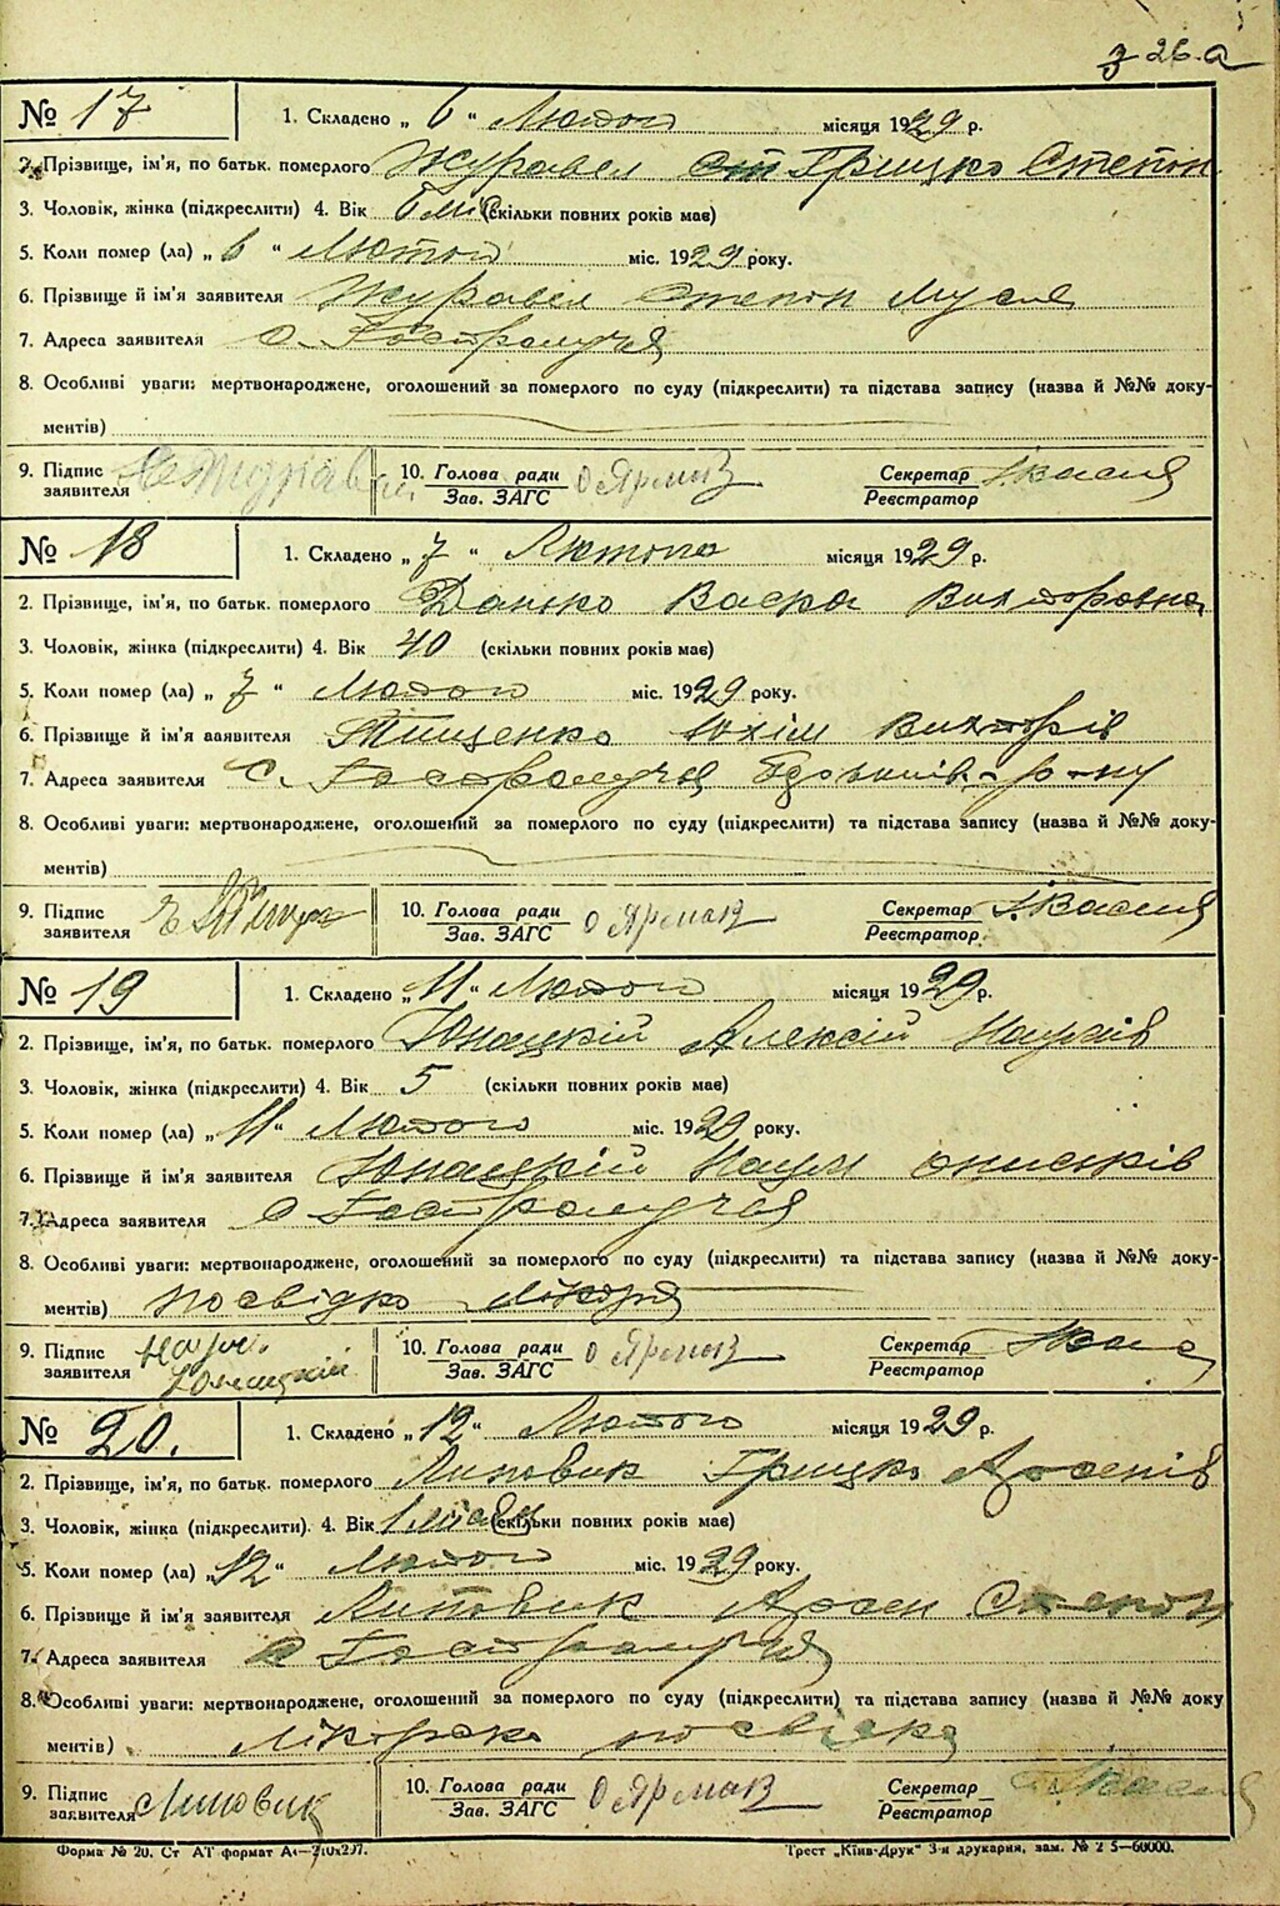 26.а
№ 17 1. Складено „ 6 “ Лютого місяця 1929 р.
2. Прізвище, ім'я, по батьк. померлого Журавел Грицко Степан
3. Чоловік, жінка (підкреслити) 4. Вік 6 міс (скільки повних років має)
5. Коли помер (ла) „ 6 “ Лютого міс. 1929 року.
6. Прізвище й ім'я заявителя Журавел Степан Мусіе
7. Адреса заявителя с. Гостролуччя
8. Особливі уваги: мертвонароджене, оголошений за померлого по суду (підкреслити) та підстава запису (назва й №№ доку-
ментів)
9. Підпис заявителя Журавель 10. Голова ради Зав. ЗАГС О Ярмак Секретар Реєстратор
№ 18 1. Складено „ 7 “ Лютого місяця 1929 р.
2. Прізвище, ім'я, по батьк. померлого Данько Васка Вихторовна
3. Чоловік, жінка (підкреслити) 4. Вік 40 (скільки повних років має)
5. Коли помер (ла) „ 7 “ Лютого міс. 1929 року.
6. Прізвище й ім'я заявителя Тищенко Юхім Вихторів
7. Адреса заявителя с. Гостролуччя р-ну
8. Особливі уваги: мертвонароджене, оголошений за померлого по суду (підкреслити) та підстава запису (назва й №№ доку-
ментів)
9. Підпис заявителя 10. Голова ради Зав. ЗАГС О Ярмак Секретар Реєстратор
№ 19 1. Складено „ 11 “ Лютого місяця 1929 р.
2. Прізвище, ім'я, по батьк. померлого Юнацкій Алексій Наумів
3. Чоловік, жінка (підкреслити) 4. Вік 5 (скільки повних років має)
5. Коли помер (ла) „ 11 “ Лютого міс. 1929 року.
6. Прізвище й ім'я заявителя Юнацкій Наум Онисків
7. Адреса заявителя с Гостролуччя
8. Особливі уваги: мертвонароджене, оголошений за померлого по суду (підкреслити) та підстава запису (назва й №№ доку-
ментів) посвідка лікаря
9. Підпис заявителя Наум Юнацкій 10. Голова ради Зав. ЗАГС О Ярмак Секретар Реєстратор
№ 20. 1. Складено „ 12 “ Лютого місяця 1929 р.
2. Прізвище, ім'я, по батьк. померлого Липовик Грицко Арсенів
3. Чоловік, жінка (підкреслити). 4. Вік 1 місяц (скільки повних років має)
5. Коли помер (ла) „ 12 “ Лютого міс. 1929 року.
6. Прізвище й ім'я заявителя Липовик Арсен Степан
7. Адреса заявителя с Гостролуччя
8. Особливі уваги: мертвонароджене, оголошений за померлого по суду (підкреслити) та підстава запису (назва й №№ доку
ментів) Лікарска посвідка
9. Підпис заявителя Липовик 10. Голова ради Зав. ЗАГС О Ярмак Секретар Реєстратор
Форма № 20. Ст АТ формат А4—210х297. Трест „Київ-Друк“ 3-я друкарня, зам. № 2 5—60000.